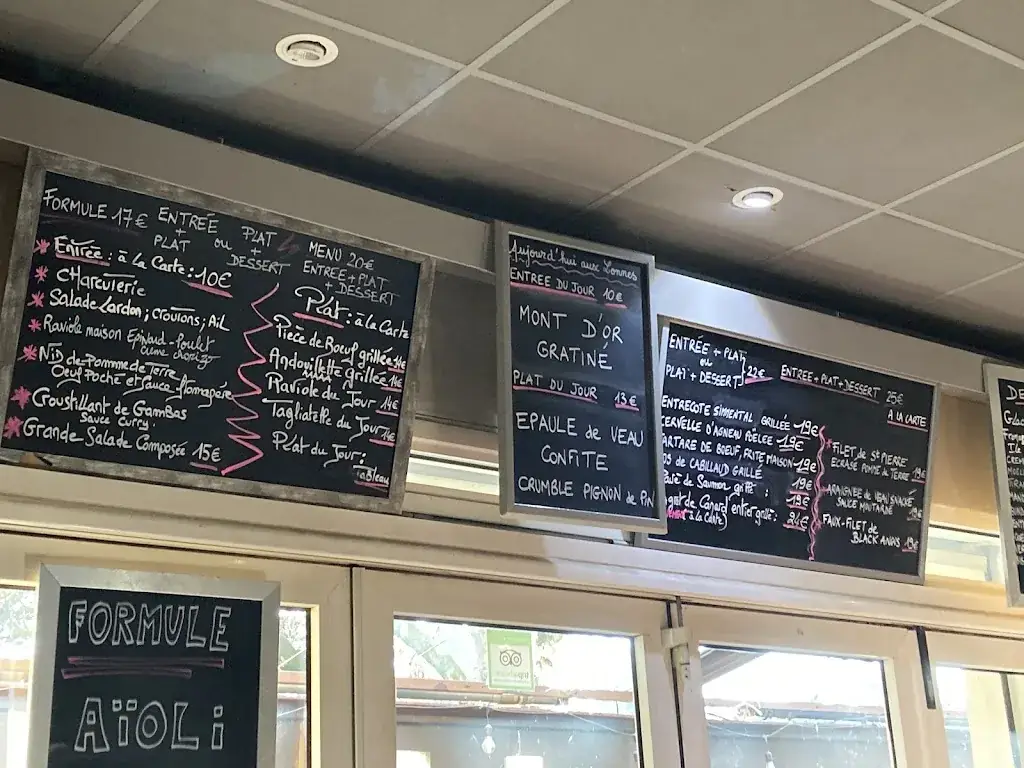 FORMULE 17€ ENTRÉE + PLAT ou PLAT + DESSERT
MENU 20€
ENTREE + PLAT + DESSERT
Entrée : à la Carte : 10€
CHARCUTERIE
Salade Lardon ; croutons ; AiL
Raviole maison Epinard - Poulet
creme chorizo
Nid de Pomme de Terre
Oeuf Poché et sauce
Croustillant de GamBas
Sauce curry.
Grande Salade Composée 15€
Plat : à la Carte
Pièce de Boeuf grillée 14€
Andouillette Grillée 14€
Raviole du Jour 14€
Tagliatelle du Jour 14€
Plat du Jour :
Tableau
Aujourd'hui aux
ENTREE DU JOUR 10€
MONT D'OR
GRATINE
PLAT DU JOUR 13€
EPAULE de VEAU
CONFITE
CRUMBLE PIGNON de PIN
ENTRÉE + PLAT
ou
PLAT + DESSERT } 22€
ENTREE + PLAT + DESSERT 25€
A LA CARTE
ENTRECOTE SIMENTAL GRILLÉE 19€
CERVELLE D'AGNEAU POÊLEE 19€
TARTARE DE BOEUF FRITE MAISON 19€
DOS de CABILLAUD GRILLÉ 19€
Pavé de Saumon grillé : 19€
de Canard entier grillé : 24€
à la Carte)
FILET de St PIERRE
ECRASÉ POMME de TERRE 19€
ARAIGNEE de VEAU SNACKÉ
SAUCE MOUTARDE 19€
FAUX-FILET de
BLACK ANGUS 19€
FORMULE
AÏOLi